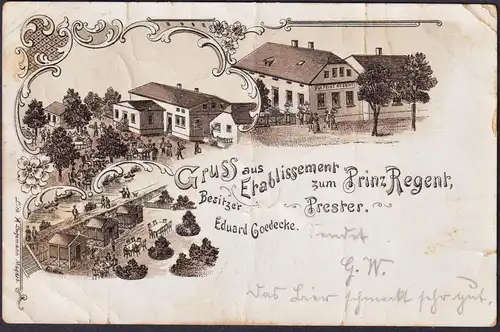 Gruss aus
Etablissement
zum Prinz Regent,
Prester.
Besitzer
Eduard Goedecke.
Sendet
G. W.
Das Bier schmeckt sehr gut.